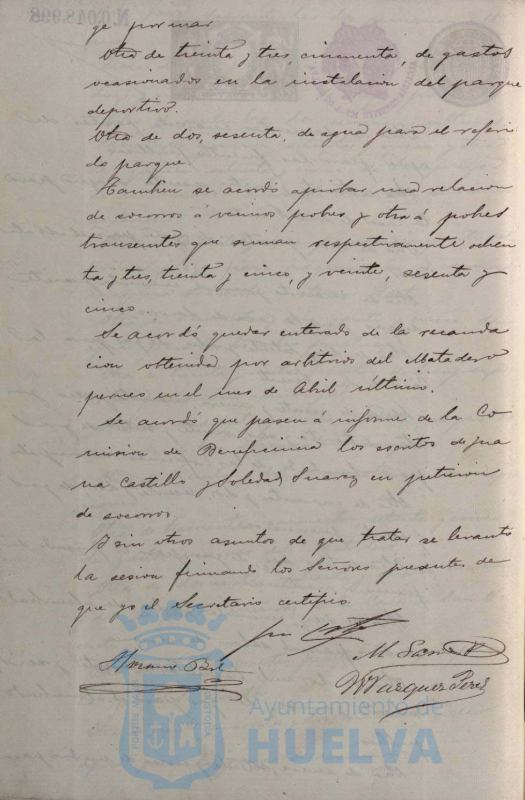 ge por mar
Otro de treinta y tres, cincuenta, de gastos
ocasionados en la instalacion del parque
deportivo.
Otro de dos, sesenta, de agua para el referi
do parque.
Tambien se acordó aprobar una relacion
de socorros á vecinos pobres y otra á pobres
transeuntes que suman respectivamente ochen
ta y tres, treinta y cinco, y veinte, sesenta y
cinco.
Se acordó quedar enterado de la recauda
cion obtenida por arbitrios del Matadero
en el mes de Abril último.
Se acordó que pasen á informe de la Co
mision de Beneficencia los escritos de Jua
na Castillo y Soledad Suarez en peticion
de socorros
Y sin otros asuntos de que tratar se levantó
la sesion firmando los Señores presentes de
que yo el Secretario certifico.
M
Vazquez Perez
Ayuntamiento de
HUELVA